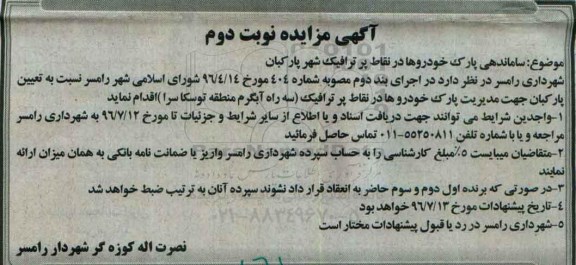 آگهی مزایده نوبت دوم
موضوع: ساماندهی پارک خودروها در نقاط پر ترافیک شهر پارکبان
شهرداری رامسر در نظر دارد در اجرای بند دوم مصوبه شماره ۴۰۴ مورخ ۹۶/۴/۱۴ شورای اسلامی شهر رامسر نسبت به تعیین
پارکبان جهت مدیریت پارک خودرو ها در نقاط پر ترافیک (سه راه آبگرم منطقه توسکا سرا )اقدام نماید
۱-واجدین شرایط می توانند جهت دریافت اسناد و یا اطلاع از سایر شرایط و جزئیات تا مورخ ۹۶/۷/۱۲ به شهرداری رامسر
مراجعه و یا با شماره تلفن ۵۵۲۵۰۸۱۱-۰۱۱ تماس حاصل فرمائید
۲-متقاضیان میبایست ۵٪مبلغ کارشناسی را به حساب سپرده شهرداری رامسر واریز یا ضمانت نامه بانکی به همان میزان ارائه
نمایند
۳-در صورتی که برنده اول دوم و سوم حاضر به انعقاد قرار داد نشوند سپرده آنان به ترتیب ضبط خواهد شد
۴-تاریخ پیشنهادات مورخ ۹۶/۷/۱۳ خواهد بود
۵-شهرداری رامسر در رد یا قبول پیشنهادات مختار است
نصرت اله کوزه گر شهردار رامسر